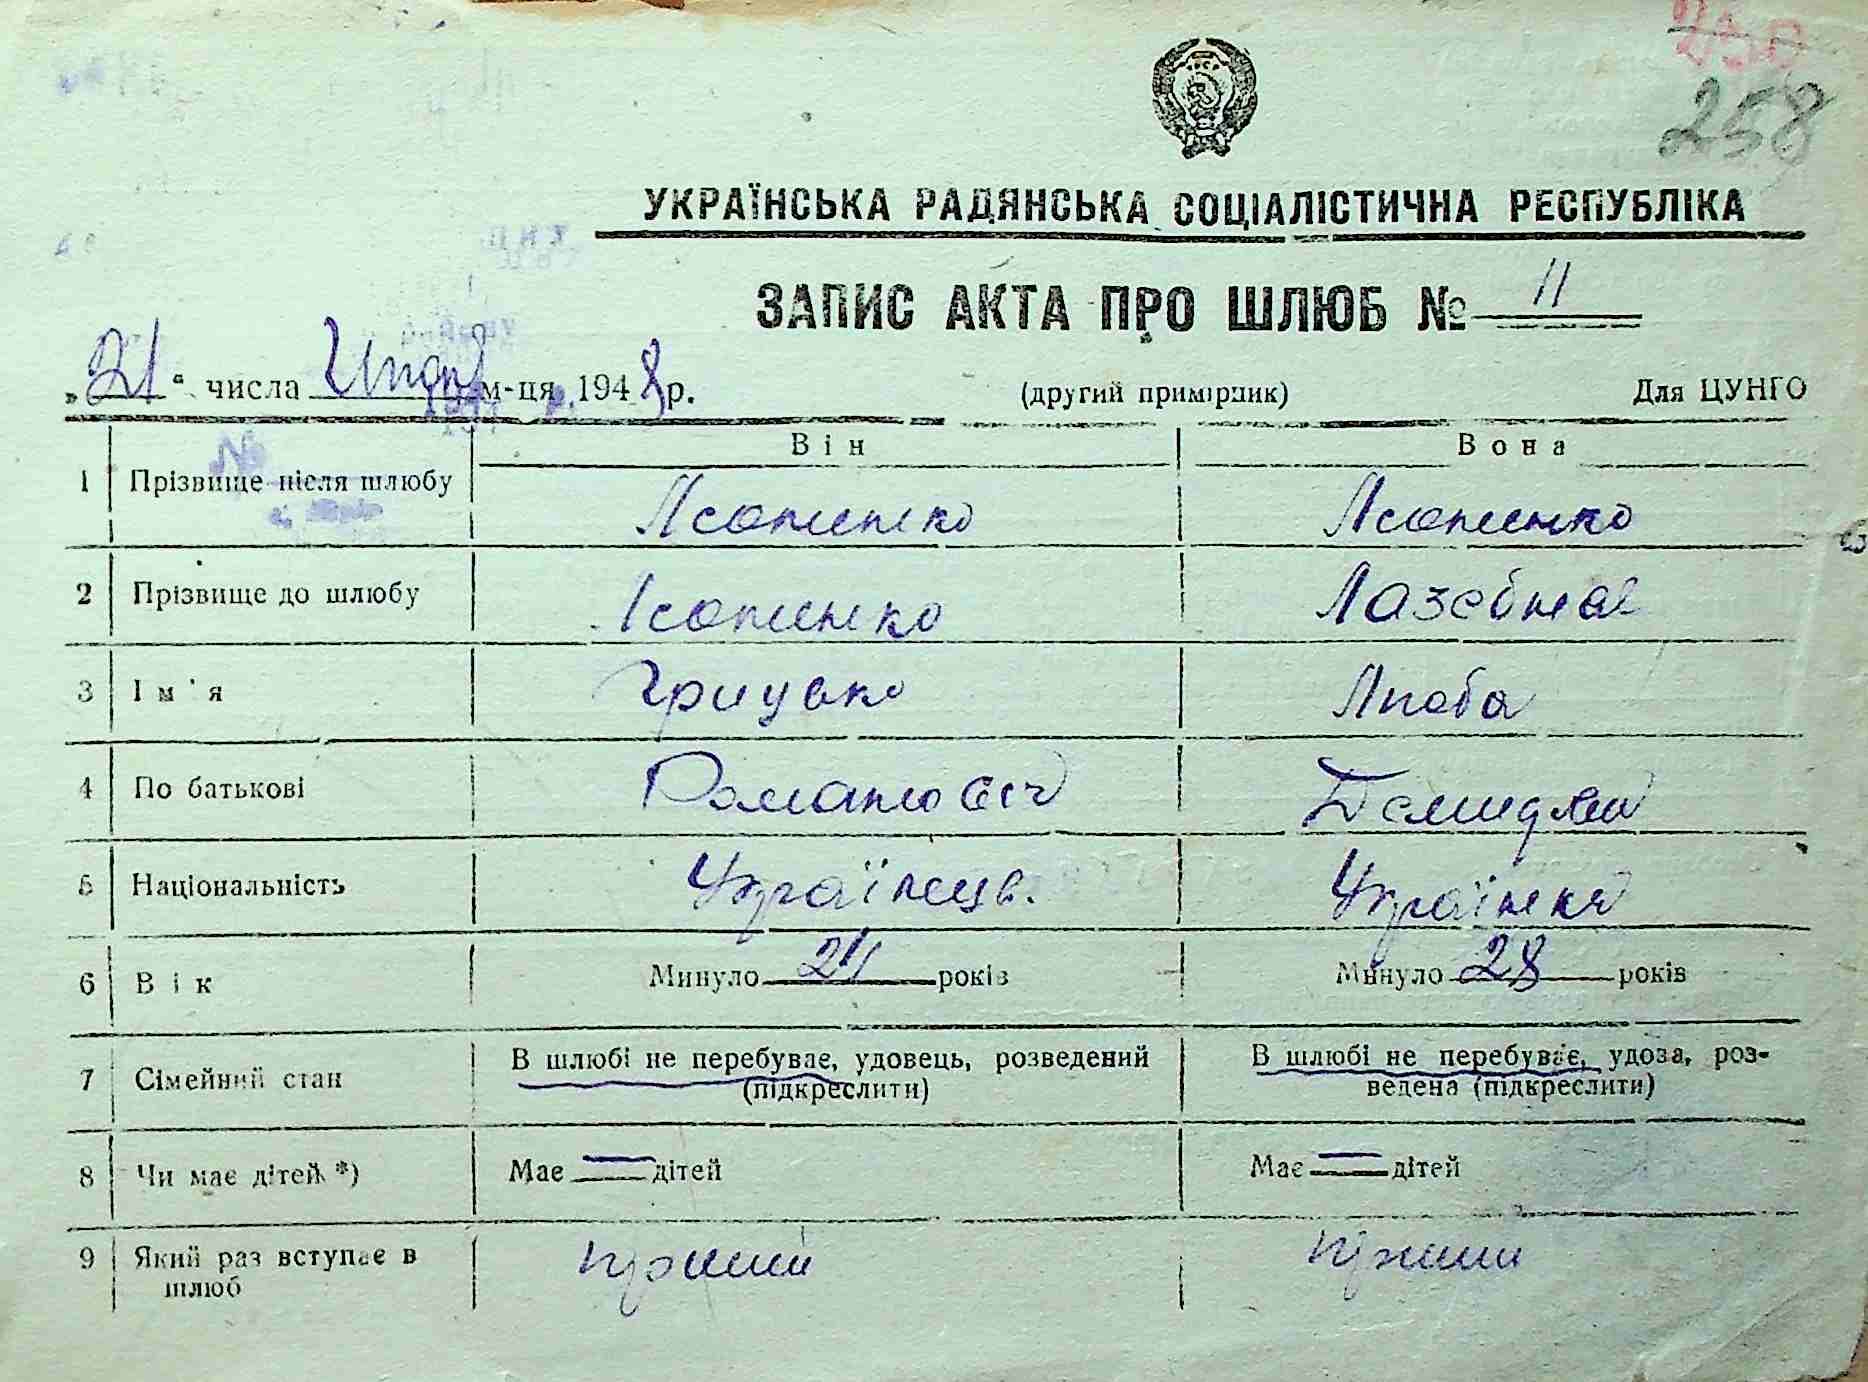 258
УКРАЇНСЬКА РАДЯНСЬКА СОЦІАЛІСТИЧНА РЕСПУБЛІКА
ЗАПИС АКТА ПРО ШЛЮБ № 11
„21“ числа м-ця 1948 р. (другий примірник) Для ЦУНГО
Він Вона
1 Прізвище після шлюбу Ісопенко Ісопенко
2 Прізвище до шлюбу Ісопенко Лазебная
3 Ім'я Грицько Люба
4 По батькові Романович
5 Національність Українець. Українка
6 Вік Минуло 24 років Минуло 28 років
7 Сімейний стан В шлюбі не перебуває, удовець, розведений (підкреслити) В шлюбі не перебуває, удова, роз-
ведена (підкреслити)
8 Чи має дітей *) Має — дітей Має — дітей
9 Який раз вступає в
шлюб